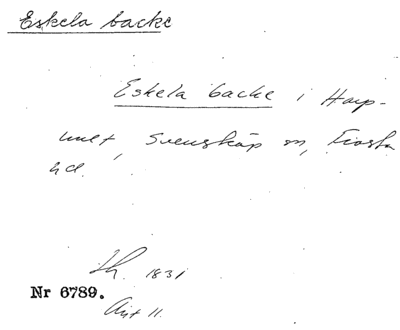 Eskela backe
Eskela backe i Harp-
unet, Svensköp sn, Frosta
hd.
Lh. 1831
Nr 6789.
Avt 11.